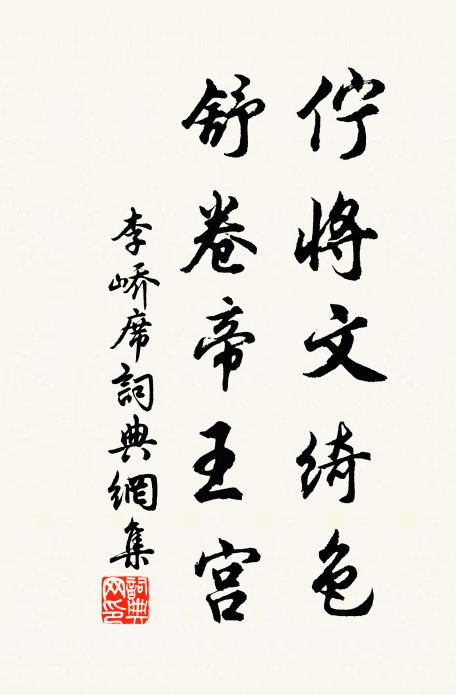 佇將文綺色
舒卷帝王宮
李嶠席詞典網集
詞典網印